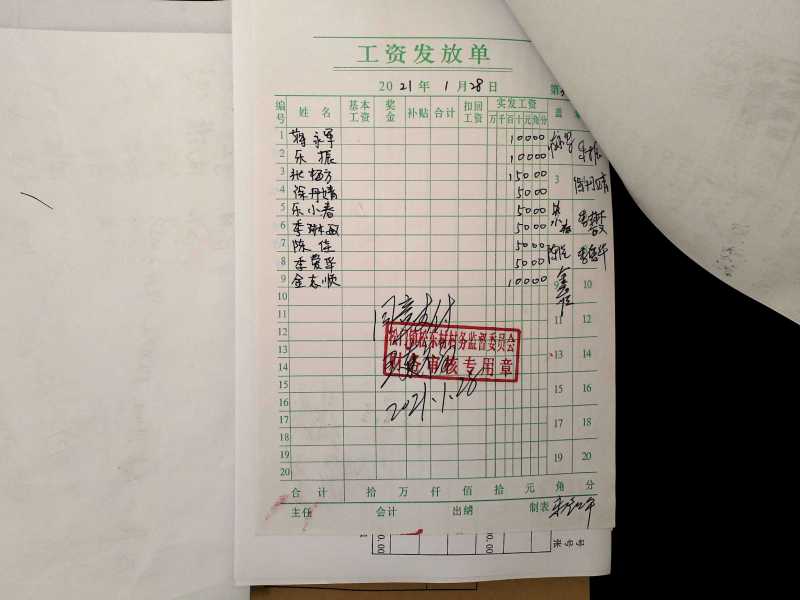 工资发放单
2021年 1月28日 第
编号 姓名 基本工资 奖金 补贴 合计 扣回工资 实发工资 盖
万千百十元角分
1 蒋永军 10000
2 乐振 10000
3 15000 3
4 徐丹婧 5000 徐丹婧
5 乐小春 5000
6 李琳敏 5000 李琳敏
7 陈 5000
8 李爱华 5000 李爱华
9 金志顺 10000 9 10
10
11 11 12
12 同意支付
13 松门镇松东村村务监督委员会 13 14
14 财务审核专用章
15 15 16
16 2021.1.28
17 17 18
18
19 19 20
20
合计 拾 万 仟 佰 拾 元 角 分
主任 会计 出纳 制表
0.00 0.00 号 号 米